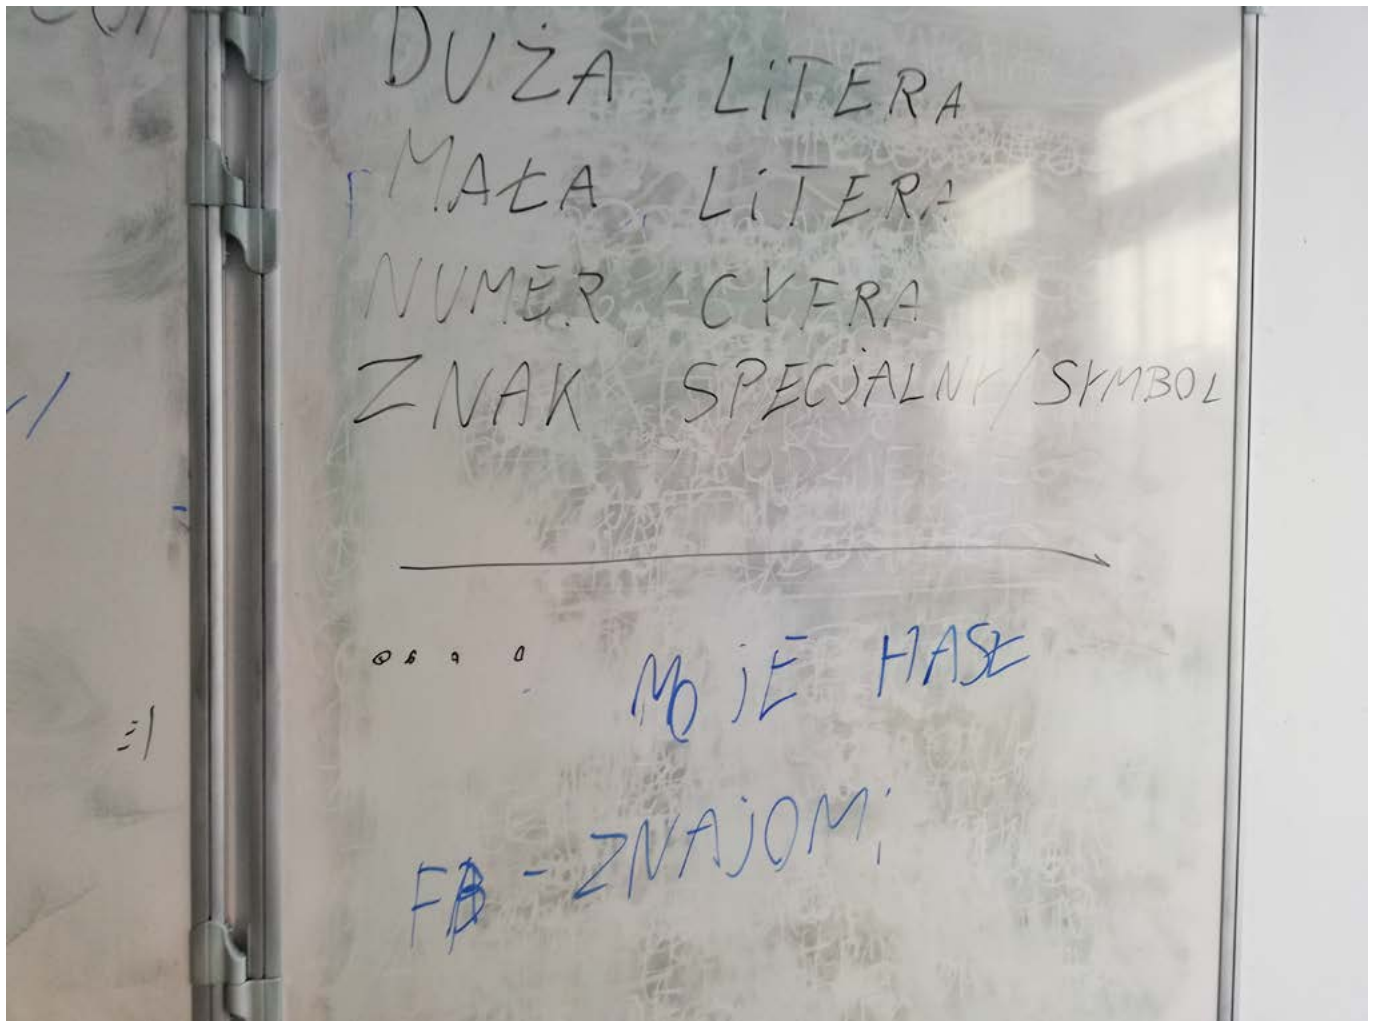 DUŻA LiTERA
MAŁA LiTERA
NUMER / CYFRA
ZNAK SPECjALNY/SYMBOL
MOjE HASŁ
FB - ZNAjOMi